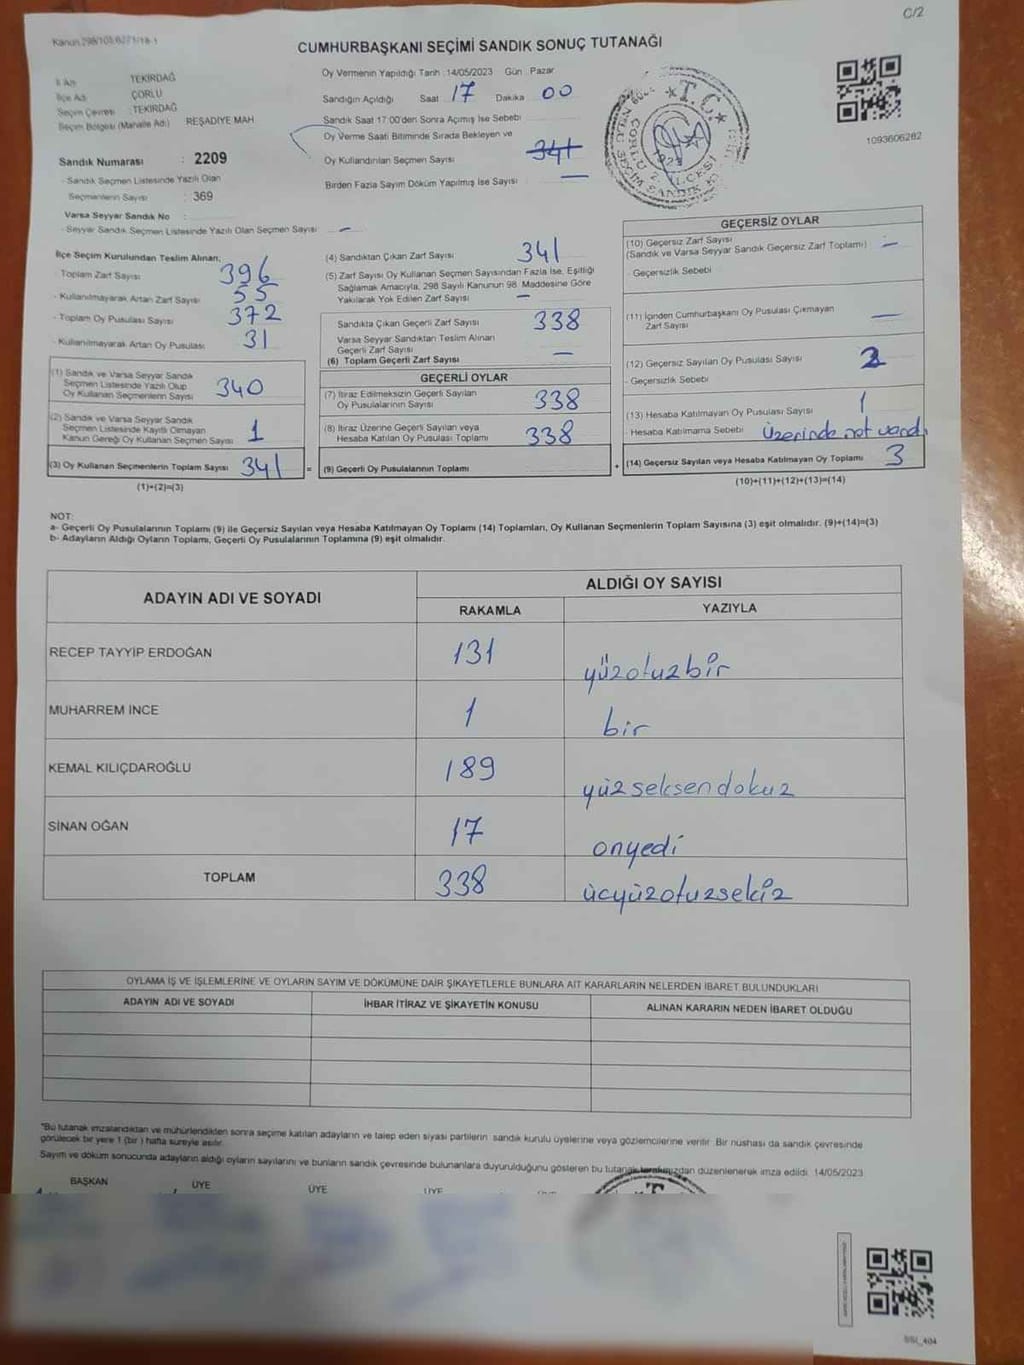 C/2
Kanun 298/105,6271/18-1
CUMHURBAŞKANI SEÇİMİ SANDIK SONUÇ TUTANAĞI
İl Adı : TEKİRDAĞ
İlçe Adı : ÇORLU
Seçim Çevresi : TEKİRDAĞ
Seçim Bölgesi (Mahalle Adı) : REŞADİYE MAH
Sandık Numarası : 2209
- Sandık Seçmen Listesinde Yazılı Olan
Seçmenlerin Sayısı : 369
Varsa Seyyar Sandık No :
- Seyyar Sandık Seçmen Listesinde Yazılı Olan Seçmen Sayısı : —
Oy Vermenin Yapıldığı Tarih : 14/05/2023 Gün : Pazar
Sandığın Açıldığı Saat 17 Dakika 00
Sandık Saat 17:00'den Sonra Açımış İse Sebebi
Oy Verme Saati Bitiminde Sırada Bekleyen ve
Oy Kullandırılan Seçmen Sayısı 341
Birden Fazla Sayım Döküm Yapılmış İse Sayısı —
T.C.
1093606282
İlçe Seçim Kurulundan Teslim Alınan;
- Toplam Zarf Sayısı 396
- Kullanılmayarak Artan Zarf Sayısı 55
- Toplam Oy Pusulası Sayısı 372
- Kullanılmayarak Artan Oy Pusulası 31
(1) Sandık ve Varsa Seyyar Sandık
Seçmen Listesinde Yazılı Olup
Oy Kullanan Seçmenlerin Sayısı 340
(2) Sandık ve Varsa Seyyar Sandık
Seçmen Listesinde Kayıtlı Olmayan
Kanun Gereği Oy Kullanan Seçmen Sayısı 1
(3) Oy Kullanan Seçmenlerin Toplam Sayısı 341 =
(1)+(2)=(3)
(4) Sandıktan Çıkan Zarf Sayısı 341
(5) Zarf Sayısı Oy Kullanan Seçmen Sayısından Fazla İse, Eşitliği
Sağlamak Amacıyla, 298 Sayılı Kanunun 98. Maddesine Göre
Yakılarak Yok Edilen Zarf Sayısı —
Sandıkta Çıkan Geçerli Zarf Sayısı 338
Varsa Seyyar Sandıktan Teslim Alınan
Geçerli Zarf Sayısı —
(6) Toplam Geçerli Zarf Sayısı
GEÇERLİ OYLAR
(7) İtiraz Edilmeksizin Geçerli Sayılan
Oy Pusulalarının Sayısı 338
(8) İtiraz Üzerine Geçerli Sayılan veya
Hesaba Katılan Oy Pusulası Toplamı 338
(9) Geçerli Oy Pusulalarının Toplamı +
GEÇERSİZ OYLAR
(10) Geçersiz Zarf Sayısı
(Sandık ve Varsa Seyyar Sandık Geçersiz Zarf Toplamı) —
- Geçersizlik Sebebi
(11) İçinden Cumhurbaşkanı Oy Pusulası Çıkmayan
Zarf Sayısı —
(12) Geçersiz Sayılan Oy Pusulası Sayısı 2
- Geçersizlik Sebebi
(13) Hesaba Katılmayan Oy Pusulası Sayısı 1
- Hesaba Katılmama Sebebi üzerinde not vardı
(14) Geçersiz Sayılan veya Hesaba Katılmayan Oy Toplamı 3
(10)+(11)+(12)+(13)=(14)
NOT:
a- Geçerli Oy Pusulalarının Toplamı (9) ile Geçersiz Sayılan veya Hesaba Katılmayan Oy Toplamı (14) Toplamları, Oy Kullanan Seçmenlerin Toplam Sayısına (3) eşit olmalıdır. (9)+(14)=(3)
b- Adayların Aldığı Oyların Toplamı, Geçerli Oy Pusulalarının Toplamına (9) eşit olmalıdır.
ADAYIN ADI VE SOYADI ALDIĞI OY SAYISI
RAKAMLA YAZIYLA
RECEP TAYYİP ERDOĞAN 131 yüzotuzbir
MUHARREM İNCE 1 bir
KEMAL KILIÇDAROĞLU 189 yüzseksendokuz
SİNAN OĞAN 17 onyedi
TOPLAM 338 ücyüzotuzsekiz
OYLAMA İŞ VE İŞLEMLERİNE VE OYLARIN SAYIM VE DÖKÜMÜNE DAİR ŞİKAYETLERLE BUNLARA AİT KARARLARIN NELERDEN İBARET BULUNDUKLARI
ADAYIN ADI VE SOYADI İHBAR İTİRAZ VE ŞİKAYETİN KONUSU ALINAN KARARIN NEDEN İBARET OLDUĞU
*Bu tutanak imzalandıktan ve mühürlendikten sonra seçime katılan adayların ve talep eden siyasi partilerin sandık kurulu üyelerine veya gözlemcilerine verilir. Bir nüshası da sandık çevresinde
görülecek bir yere 1 (bir) hafta süreyle asılır.
Sayım ve döküm sonucunda adayların aldığı oyların sayılarını ve bunların sandık çevresinde bulunanlara duyurulduğunu gösteren bu tutanak tarafımızdan düzenlenerek imza edildi. 14/05/2023
BAŞKAN ÜYE ÜYE ÜYE
SSİ_404